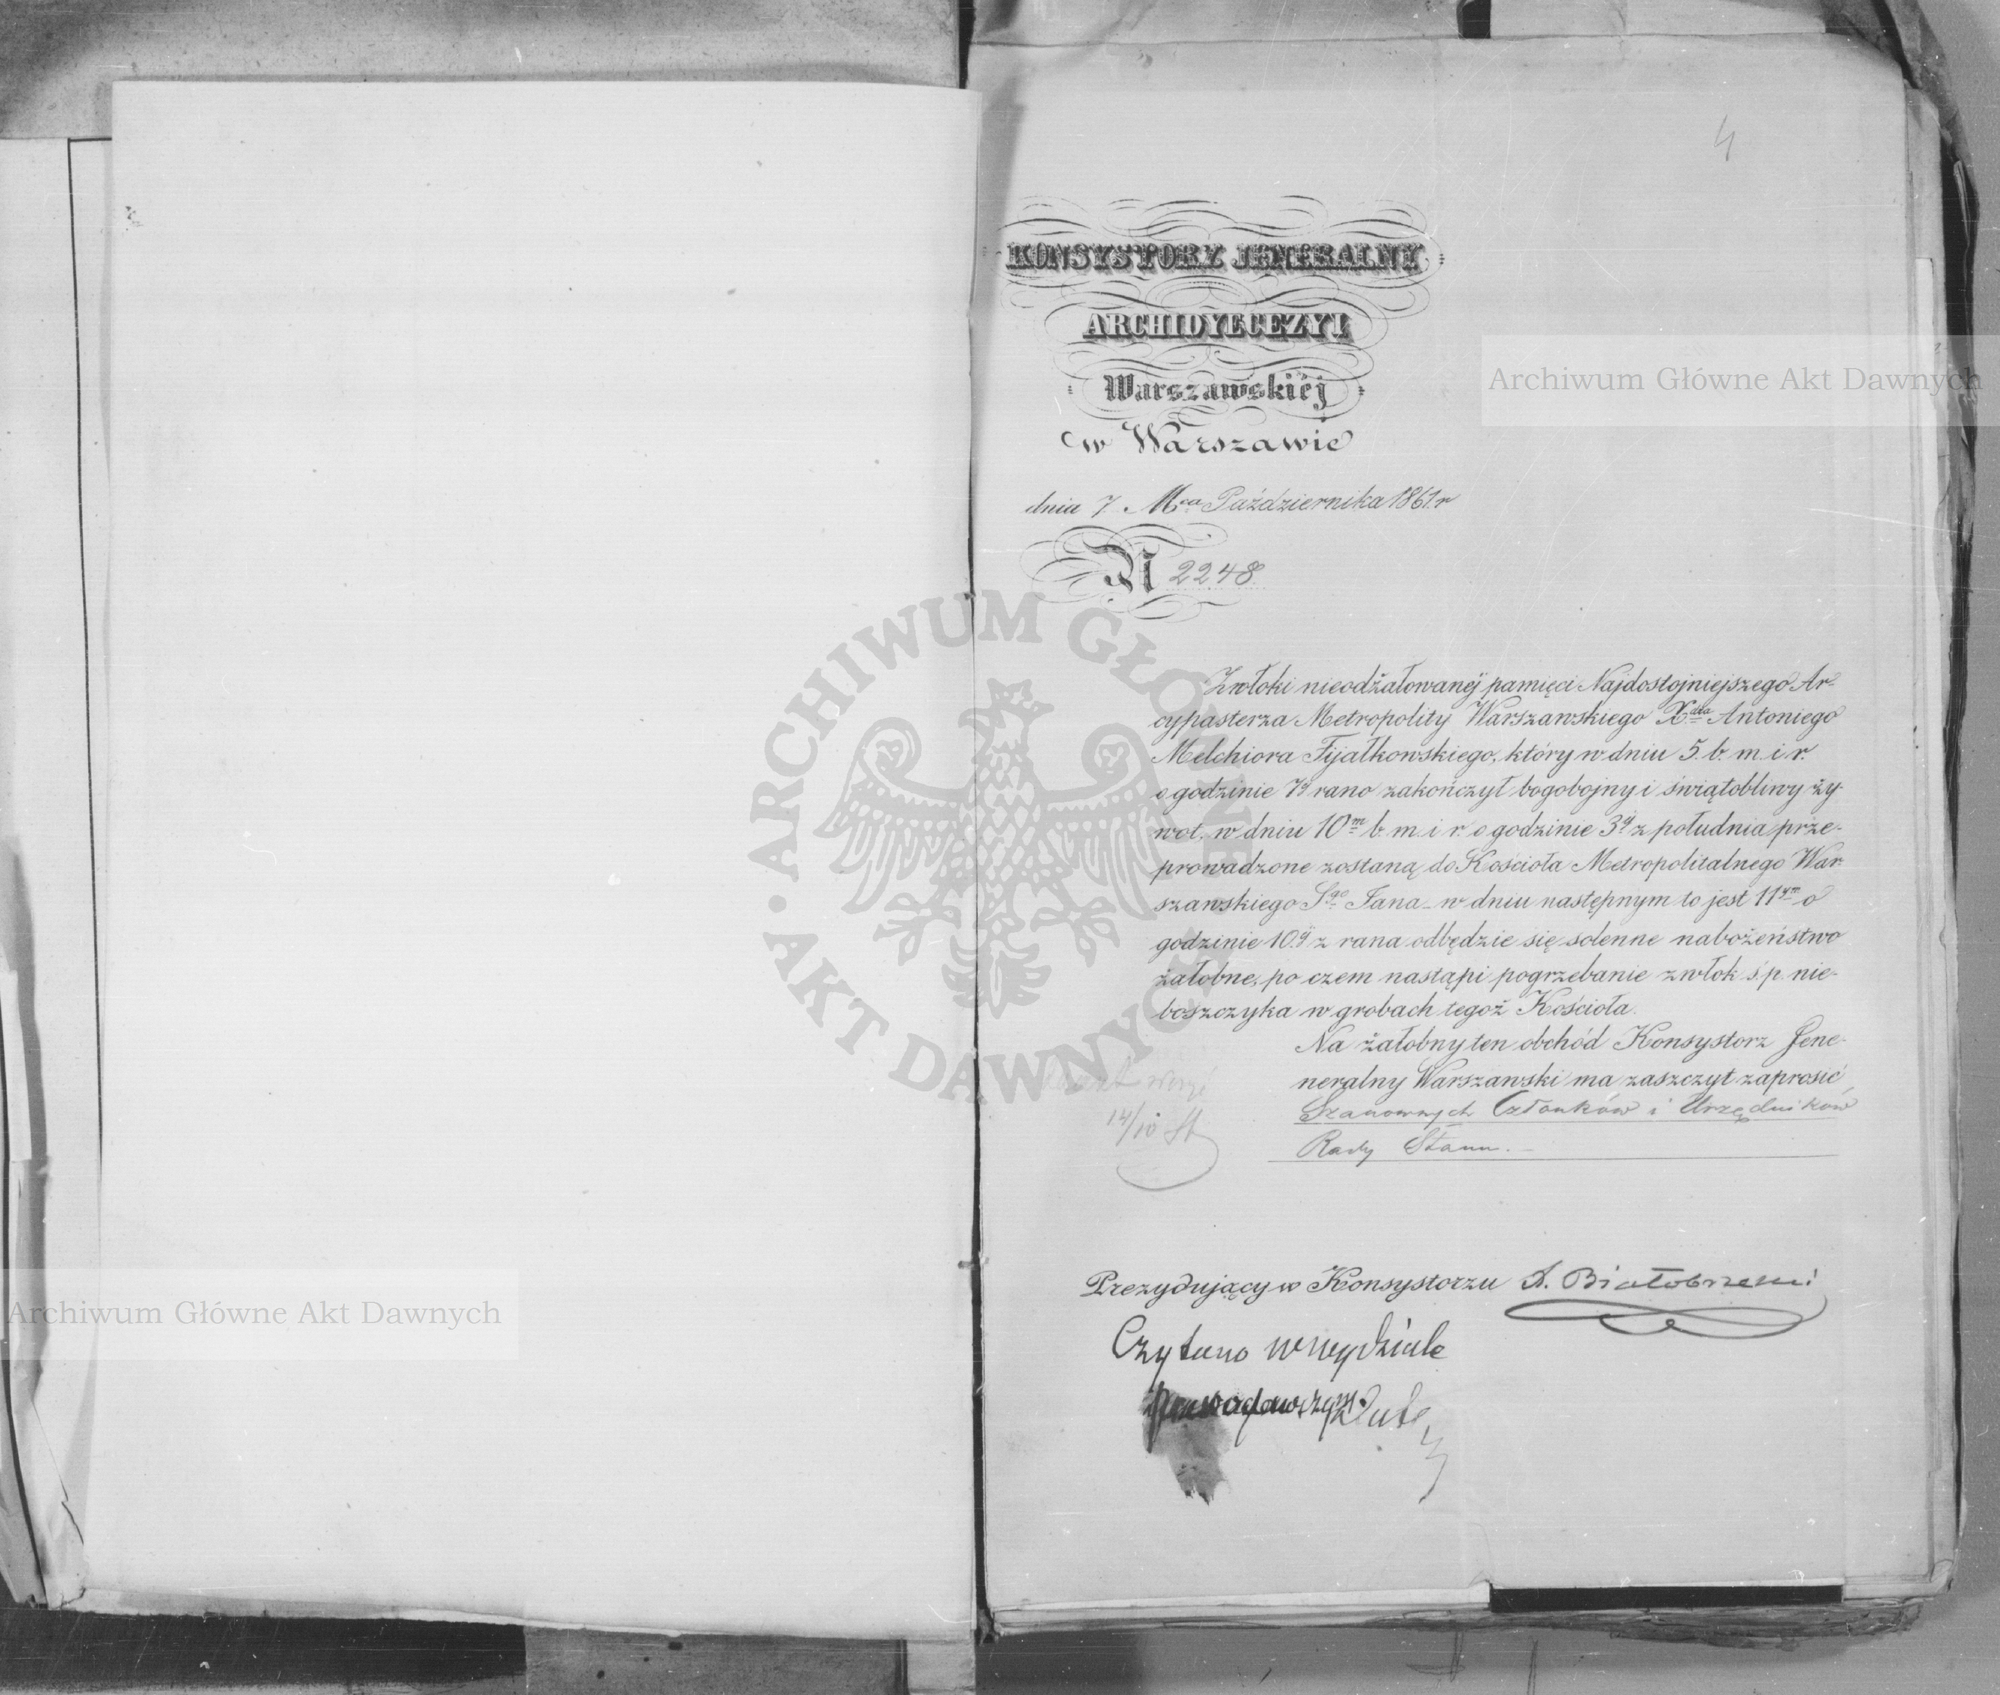 4
KONSYSTORZ JENERALNY
ARCHIDYECEZYI
Warszawskiéj
w Warszawie
dnia 7 Mca Października 1861 r
N 2248
Zwłoki nieodżałowanéj pamięci Najdostojniejszego Ar-
cypasterza Metropolity Warszawskiego Xdza Antoniego
Melchiora Fijałkowskiego, który w dniu 5. b. m. i r.
o godzinie 7éj rano zakończył bogobojny i świątobliwy ży-
wot, w dniu 10m b. m. i r. o godzinie 3éj z południa prze-
prowadzone zostaną do Kościoła Metropolitalnego War-
szawskiego Sgo Jana – w dniu następnym to jest 11ym o
godzinie 10éj z rana odbędzie się solenne nabożeństwo
żałobne, po czem nastąpi pogrzebanie zwłok ś.p. nie-
boszczyka w grobach tegoż Kościoła.
Na żałobny ten obchód Konsystorz Jene-
neralny Warszawski ma zaszczyt zaprosić
Szanownych Członków i Urzędników
Rady Stanu. –
14/10
Prezydujący w Konsystorzu A. Białobrzeski
Czytano w wydziale
Archiwum Główne Akt Dawnych
Archiwum Główne Akt Dawnych
ARCHIWUM GŁÓWNE · AKT DAWNYCH ·